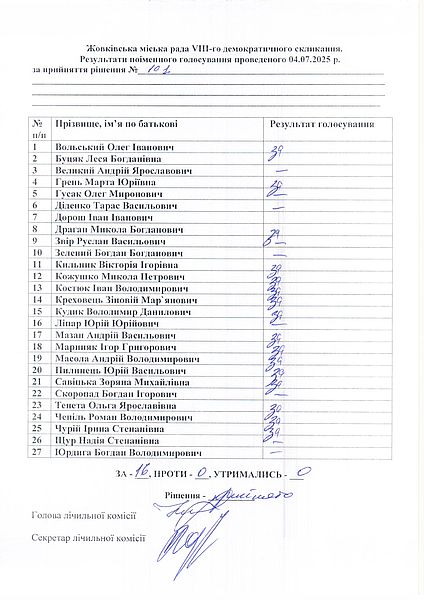 Жовківська міська рада VIII-го демократичного скликання.
Результати поіменного голосування проведеного 04.07.2025 р.
за прийняття рішення №
№ п/п Прізвище, ім’я по батькові Результат голосування
1 Вольський Олег Іванович за
2 Буцяк Леся Богданівна
3 Великий Андрій Ярославович —
4 Грень Марта Юріївна за
5 Гусак Олег Миронович —
6 Діденко Тарас Васильович —
7 Дорош Іван Іванович
8 Драган Микола Богданович за
9 Звір Руслан Васильович —
10 Зелений Богдан Богданович —
11 Кильник Вікторія Ігорівна за
12 Кожушко Микола Петрович за
13 Костюк Іван Володимирович за
14 Креховець Зіновій Мар`янович за
15 Кудик Володимир Данилович за
16 Ліпар Юрій Юрійович —
17 Мазан Андрій Васильович за
18 Мариняк Ігор Григорович за
19 Масола Андрій Володимирович за
20 Пилипець Юрій Васильович за
21 Савіцька Зоряна Михайлівна за
22 Скоропад Богдан Ігорович —
23 Тенета Ольга Ярославівна за
24 Чепіль Роман Володимирович за
25 Чурій Ірина Степанівна за
26 Щур Надія Степанівна —
27 Юрдига Богдан Володимирович —
ЗА - 16, ПРОТИ - 0, УТРИМАЛИСЬ - 0
Рішення - прийнято
Голова лічильної комісії
Секретар лічильної комісії